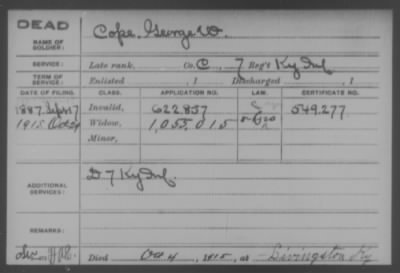 DEAD
NAME OF SOLDIER: Cope, George W.
SERVICE: Late rank, Co. C, 7 Reg't Ky Inf
TERM OF SERVICE: Enlisted , 1 Discharged , 1
DATE OF FILING. CLASS. APPLICATION NO. LAW. CERTIFICATE NO.
1887 Sept 17 Invalid, 622.857 549.277
1915 Oct 29 Widow, 1,055,015
Minor,
ADDITIONAL SERVICES: D 7 Ky Inf.
REMARKS:
Died Oct 4, 1915, at Livingston Ky